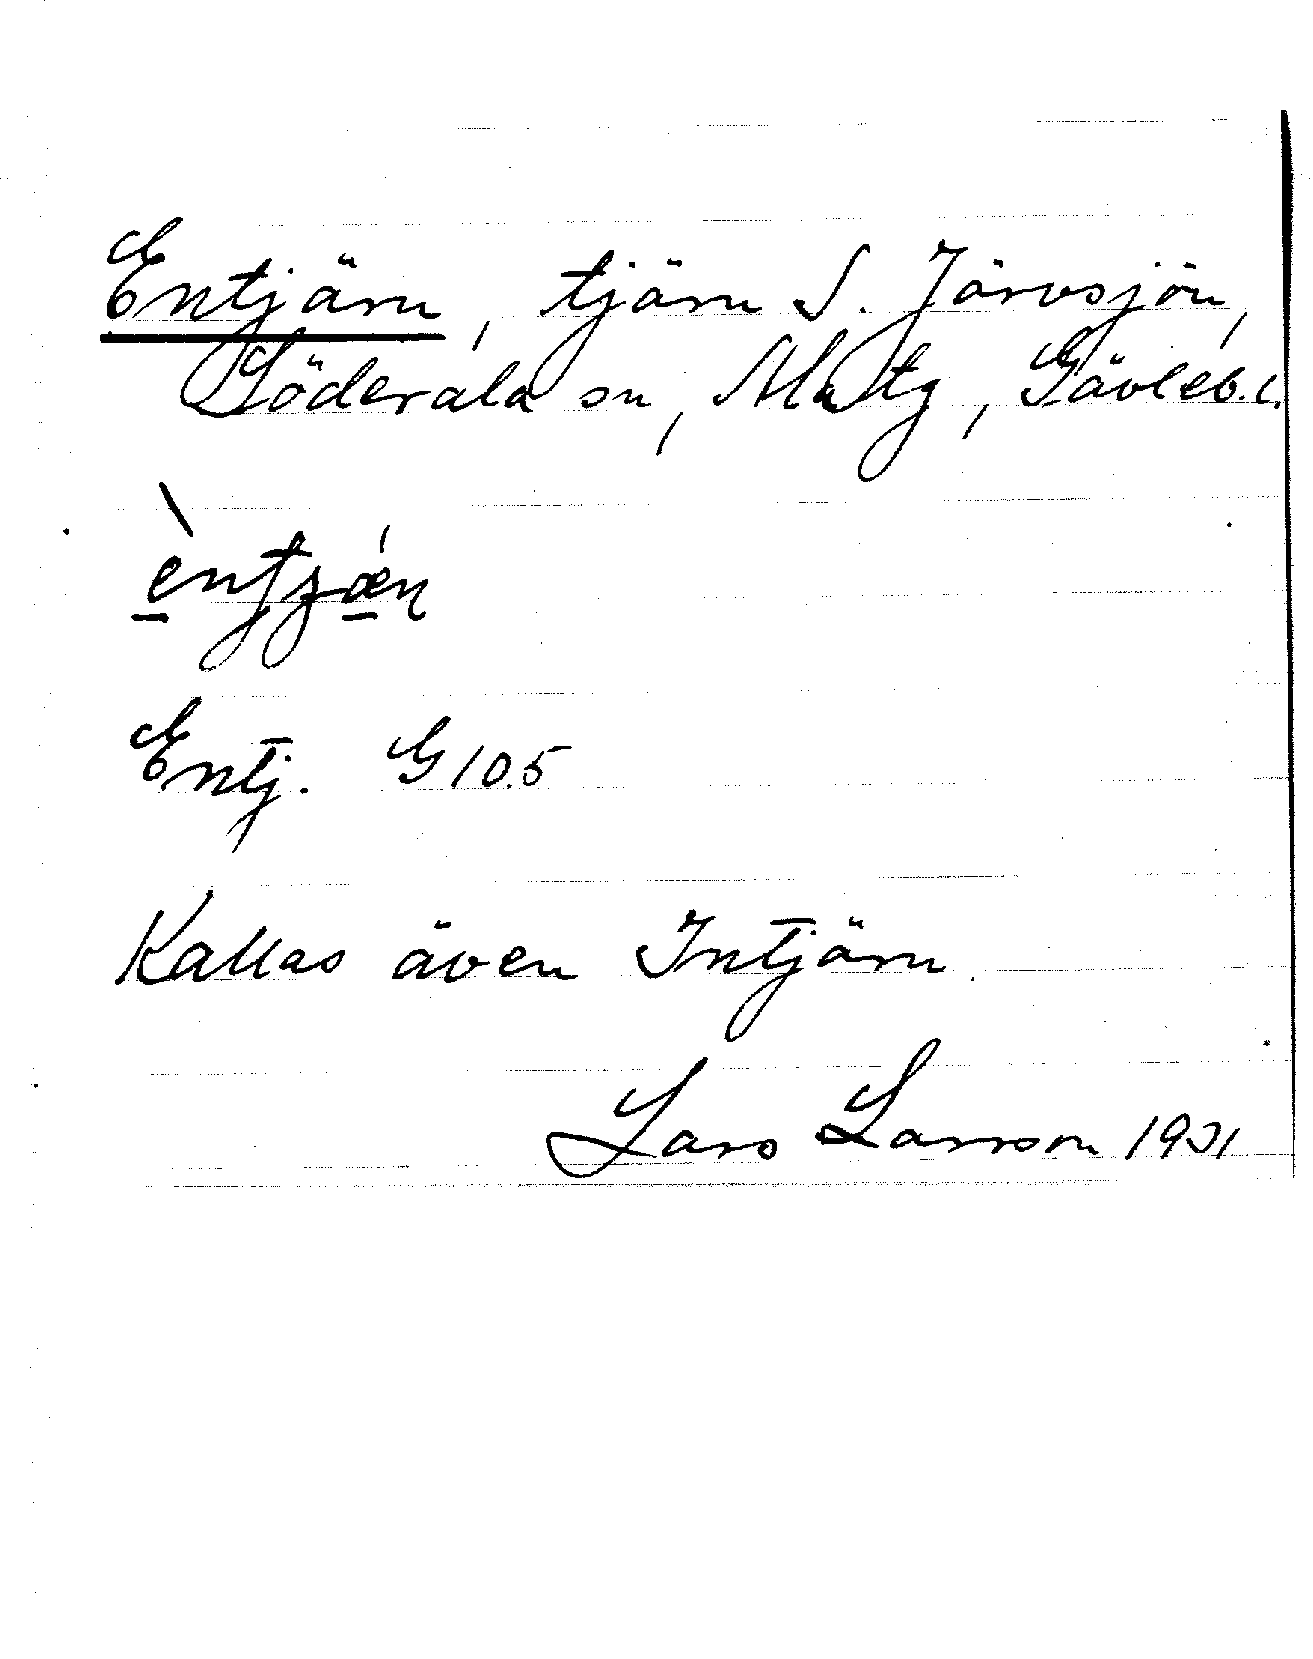 Entjärn, tjärn S. Järvsjön,
Söderala sn, Ala tg, Gävleb. l.
Entj. G 10.5
Kallas även Intjärn.
Lars Larsson 1931